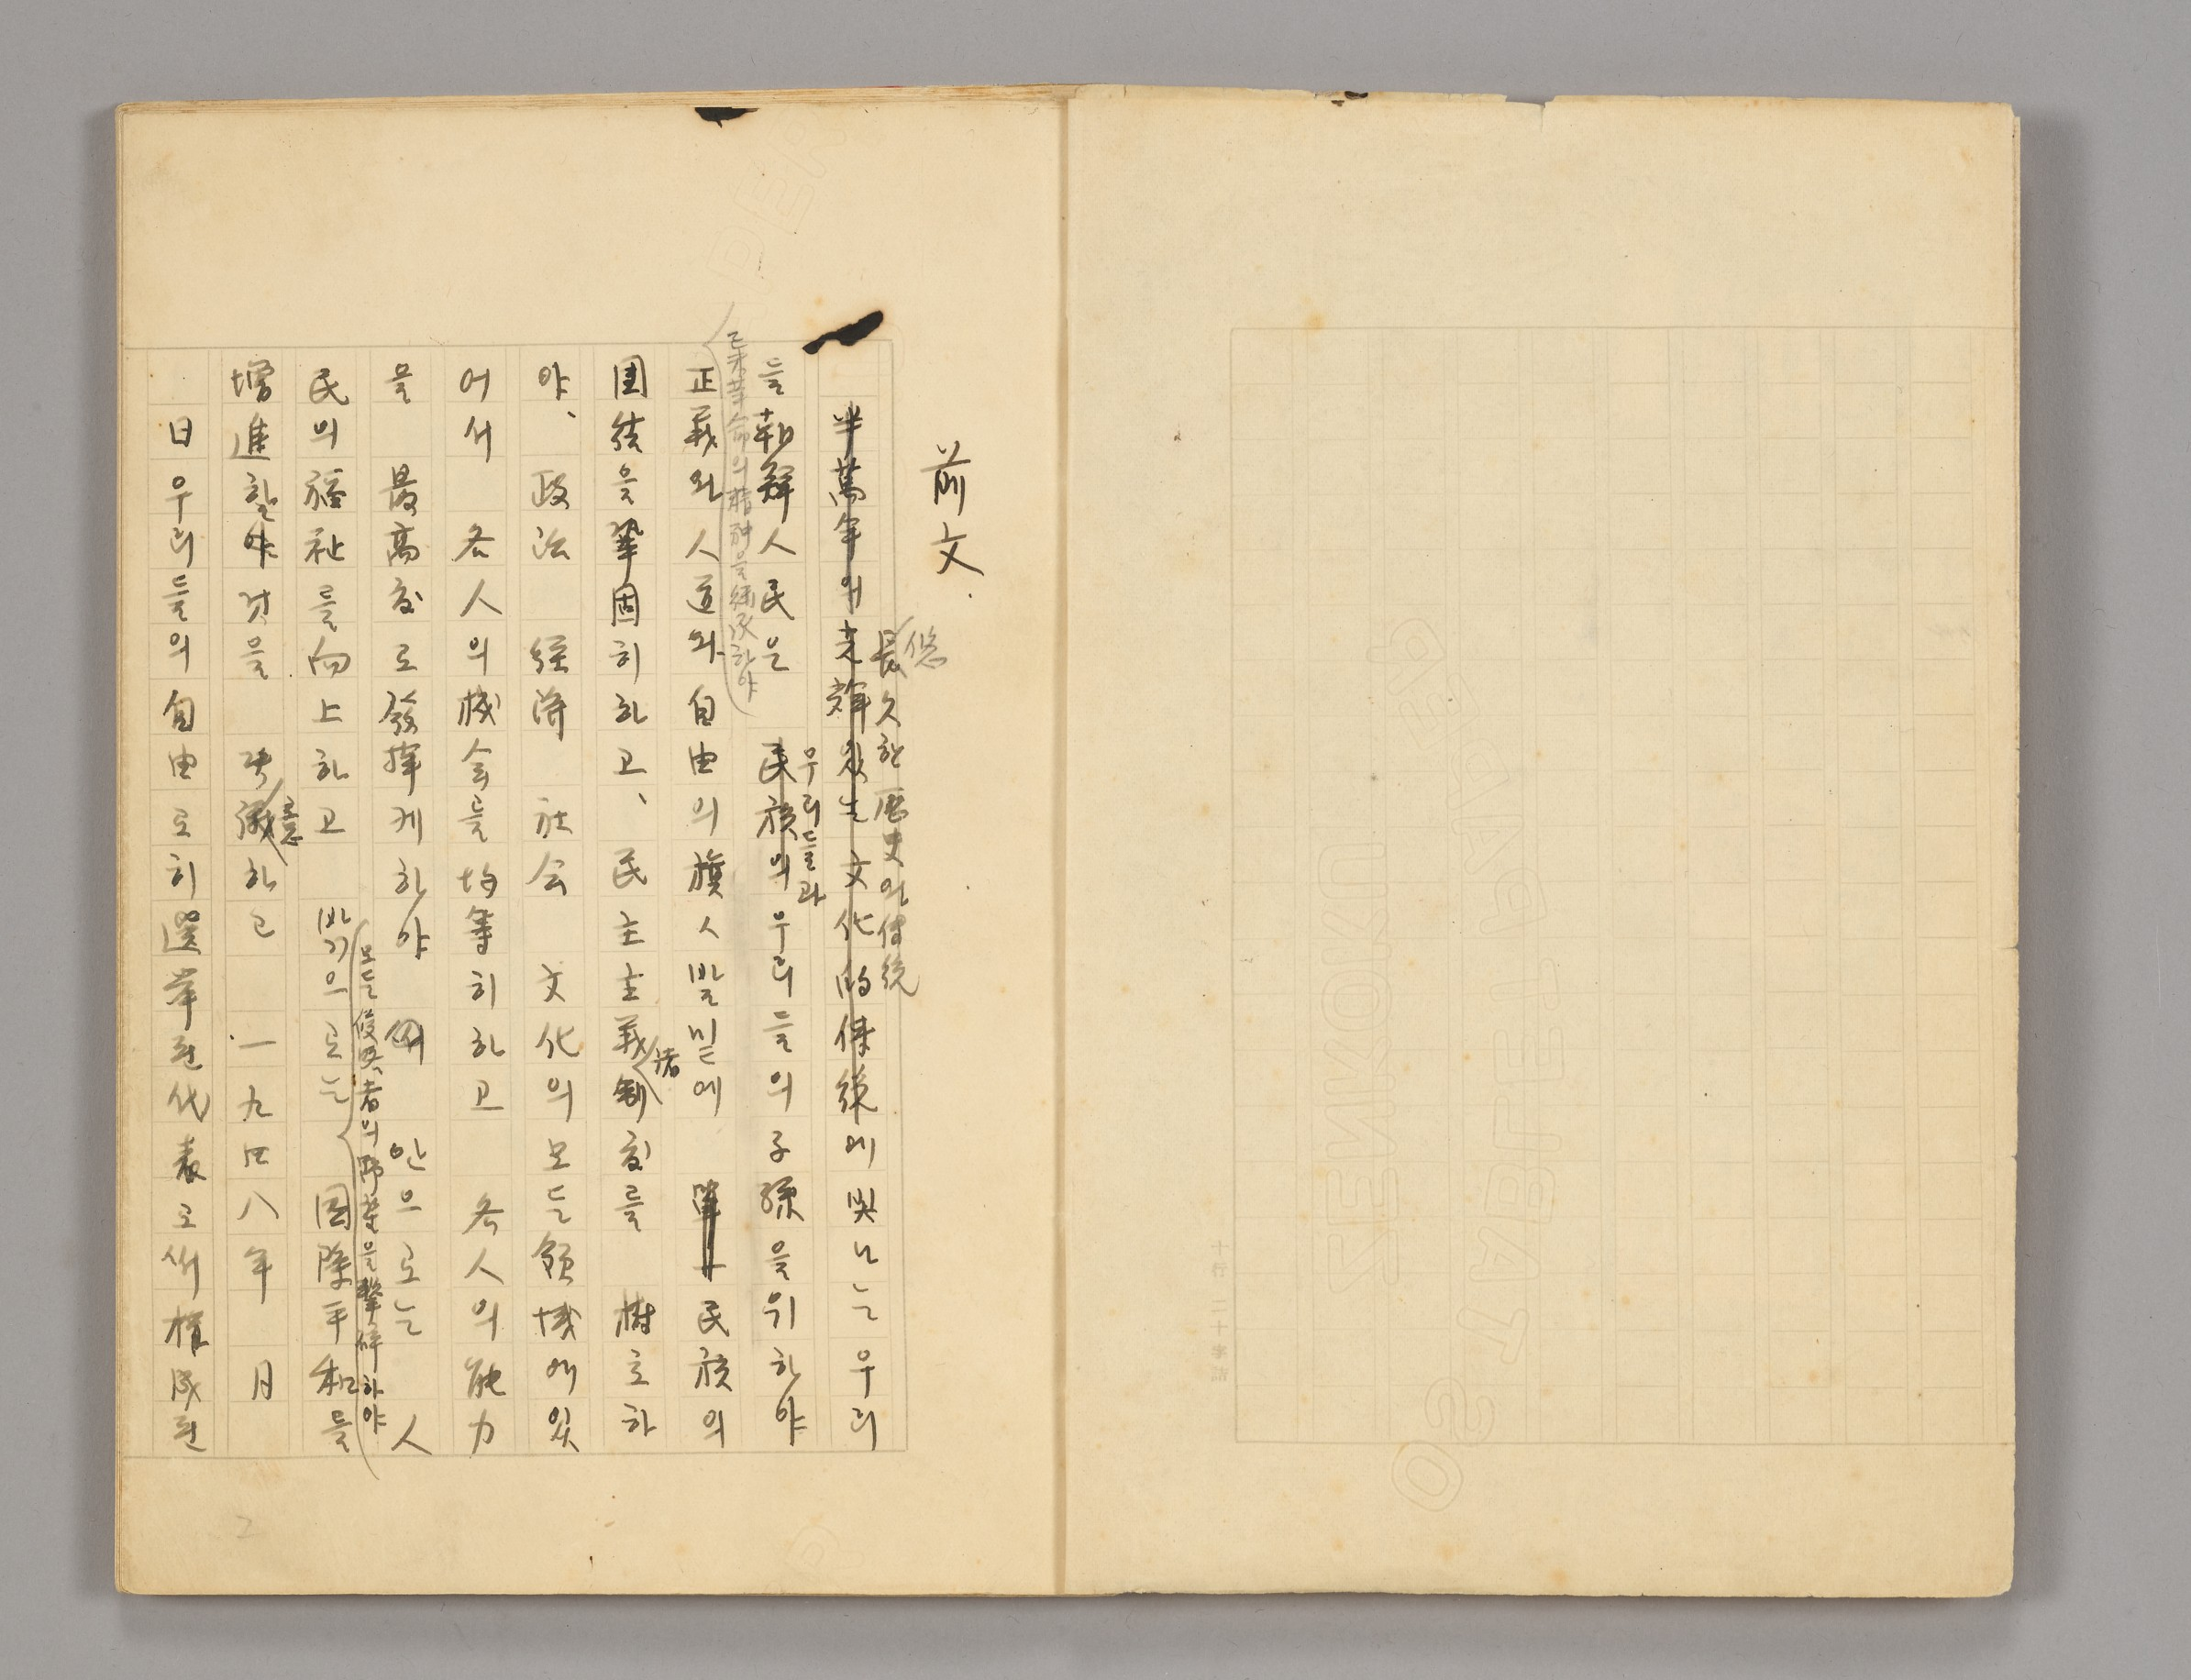 前文.
悠
長久한歷史와傳統
半萬年의光輝있는文化的傳統에빛나는우리
우리들과
들朝鮮人民은 民族의우리들의子孫을위하야
己未革命의精神을繼承하야
正義와人道와自由의旗人발밑에 單一民族의
諸
團結을鞏固히하고、民主主義制度를 樹立하
야、政治 經濟 社会 文化의모든領域에있
어서 各人의機会를均等히하고 各人의能力
을 最高度로發揮케하야 안으로는 人
모든侵略者의野望을擊碎하야
民의福祉를向上하고 밖으로는 國際平和를
意
增進할야것을 決議하고 一九四八年 月
日우리들의自由로히選挙된代表로써構成된
2
ZENIKOKU
SO TABLET PAPER
十行二十字詰